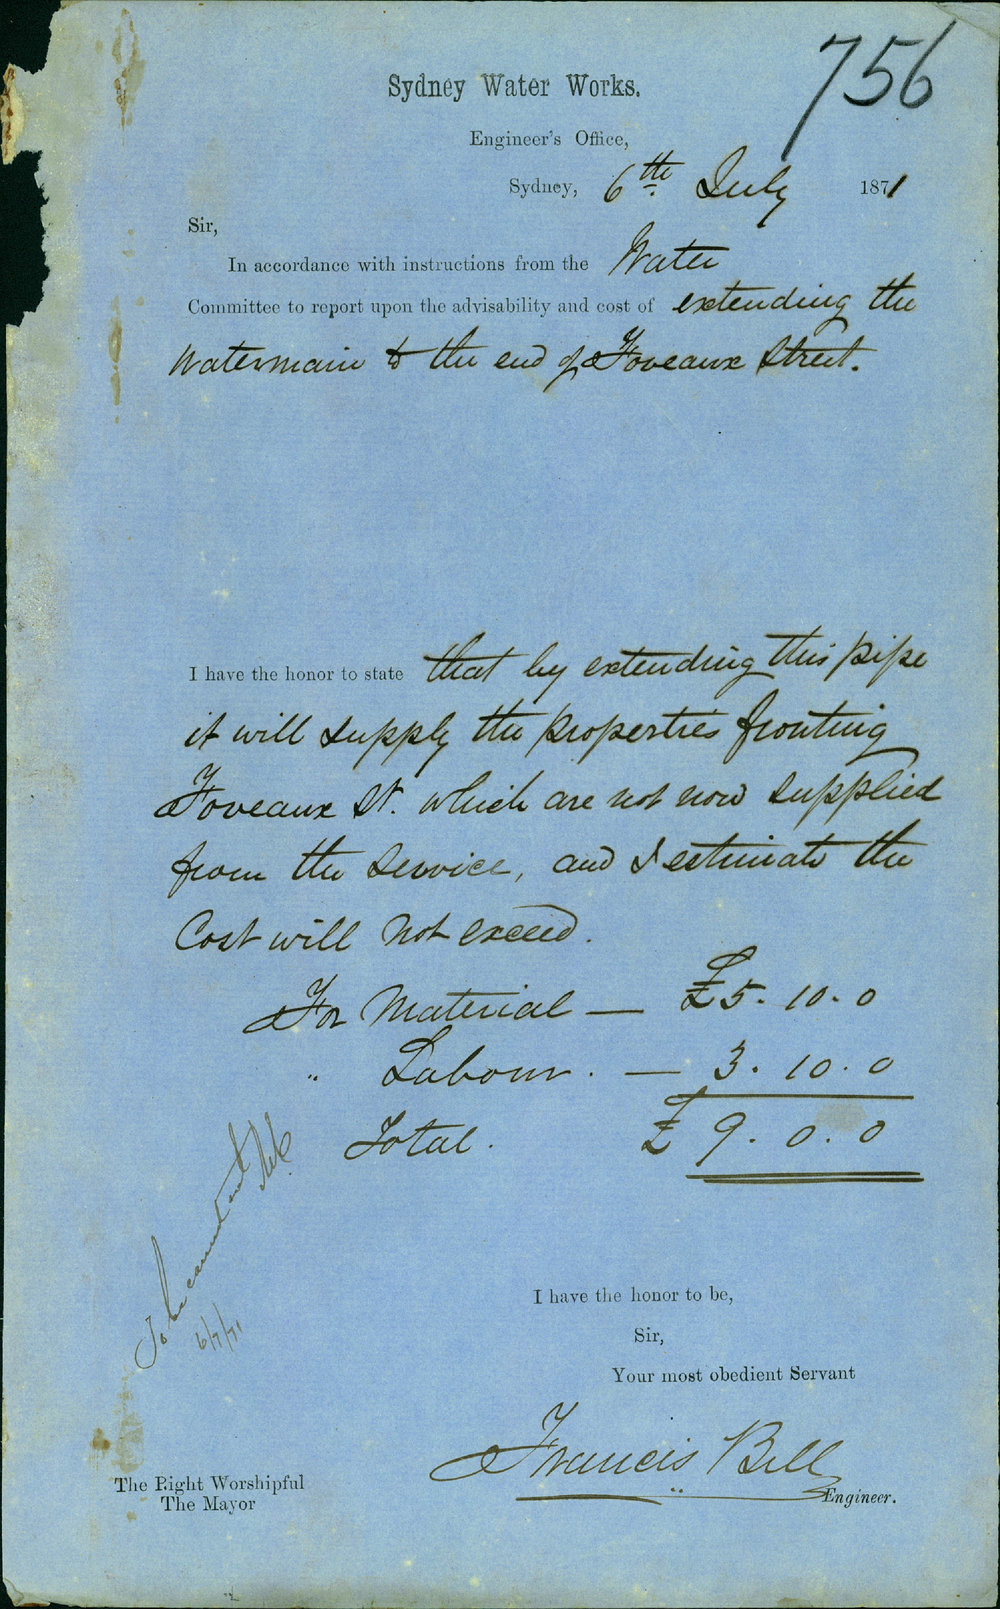 756
Sydney Water Works.
Engineer's Office,
Sydney, 6th July 1871
Sir,
In accordance with instructions from the Water
Committee to report upon the advisability and cost of extending the
Watermain to the end of Foveaux Street.
I have the honor to state that by extending this pipe
it will supply the properties fronting
Foveaux St. which are not now supplied
from the service, and I estimate the
Cost will not exceed.
For Material — £5. 10. 0
" Labour. — 3. 10. 0
Total. £ 9. 0. 0
To be carried out
6/7/71
I have the honor to be,
Sir,
Your most obedient Servant
Francis Bell
Engineer.
The Right Worshipful
The Mayor